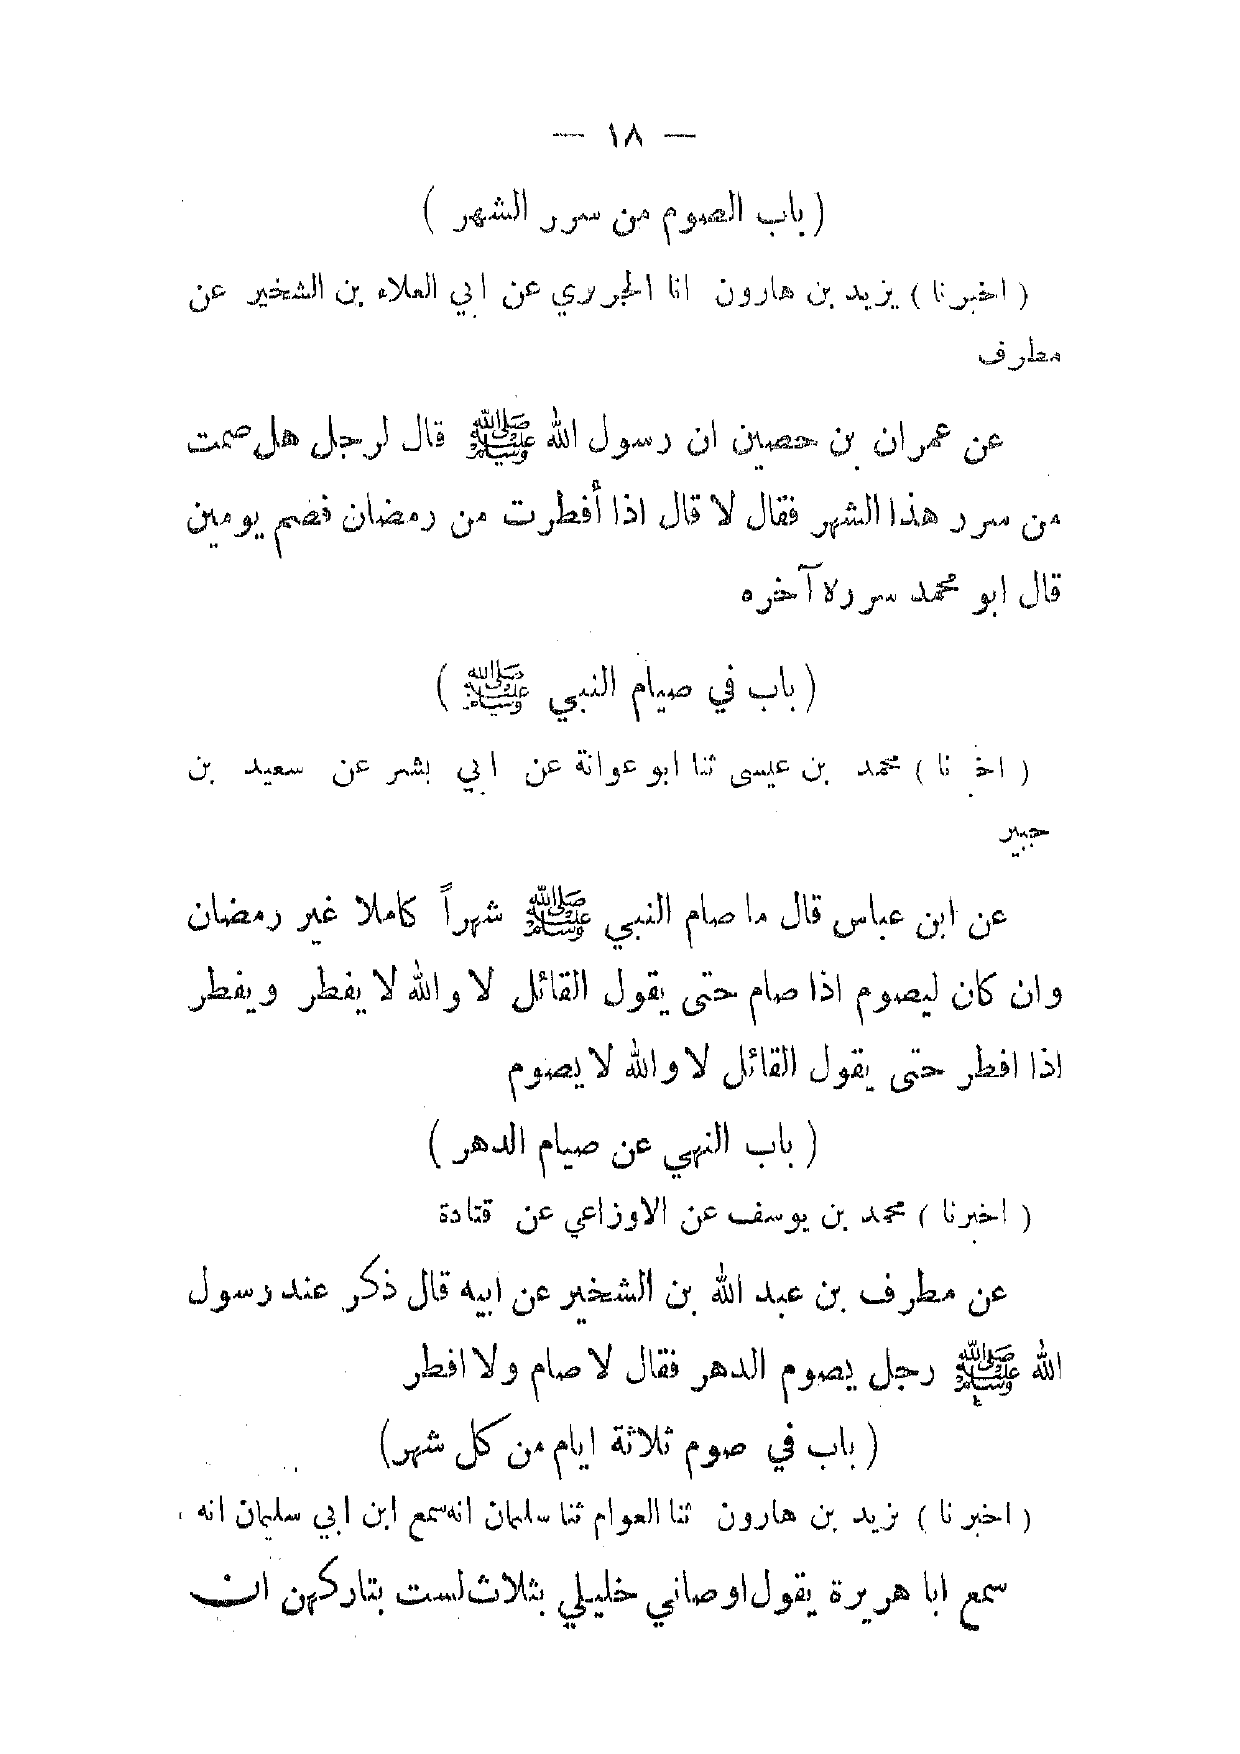 — ١٨ —
( باب الصوم من سرر الشهر )
( اخبرنا ) يزيد بن هارون انا الجريري عن ابي العلاء بن الشخير عن
مطرف
عن عمران بن حصين ان رسول الله ﷺ قال لرجل هل صمت
من سرر هذا الشهر فقال لا قال اذا أفطرت من رمضان فصم يومين
قال ابو محمد سرره آخره
( باب في صيام النبي ﷺ )
( اخ نا ) محمد بن عيسى ثنا ابو عوانة عن ابي بشر عن سعيد بن
جبير
عن ابن عباس قال ما صام النبي ﷺ شهراً كاملا غير رمضان
وان كان ليصوم اذا صام حتى يقول القائل لا والله لا يفطر ويفطر
اذا افطر حتى يقول القائل لا والله لا يصوم
( باب النهي عن صيام الدهر )
( اخبرنا ) محمد بن يوسف عن الاوزاعي عن قتادة
عن مطرف بن عبد الله بن الشخير عن ابيه قال ذكر عند رسول
الله ﷺ رجل يصوم الدهر فقال لا صام ولا افطر
( باب في صوم ثلاثة ايام من كل شهر)
( اخبرنا ) يزيد بن هارون ثنا العوام ثنا سليمان انه سمع ابن ابي سليمان انه
سمع ابا هريرة يقول اوصاني خليلي بثلاث لست بتاركهن ان